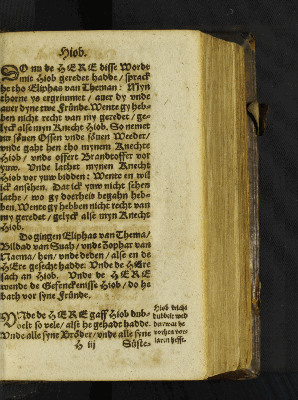 Hiob.
DO nu de HERE disse Worde
mit Hiob geredet hadde / sprack
he tho Eliphas van Theman: Myn
thorne ys ergrimmet / auer dy vnde
auer dyne twe Fründe. Wente gy heb-
ben nicht recht van my geredet / ge-
lyck alse myn Knecht Hiob. So nemet
nu söuen Ossen vnde söuen Weeder /
vnde gaht hen tho mynem Knechte
Hiob / vnde offert Brandtoffer vor
yuw. Vnde lathet mynen Knecht
Hiob vor yuw bidden: Wente en wil
ick ansehen. Dat ick yuw nicht sehen
lathe / wo gy dorheit begahn heb-
ben. Wente gy hebben nicht recht van
my geredet / gelyck alse myn Knecht
Hiob.
Do gingen Eliphas van Thema /
Bildad van Suah / vnde Zophar van
Naema / hen / vnde deden / alse en de
HEre gesecht hadde. Vnde de HEre
sach an Hiob. Vnde de HERE
wende de Gefenckenisse Hiob / do he
bath vor syne Fründe.
Vnde de HERE gaff Hiob dub-
belt so vele / alse he gehadt hadde.
Vnde alle syne Bröder / vnde alle syne
Hiob
dubbelt wed
der / wat he
vorhen vor-
laren hefft.
H iij
Süste-